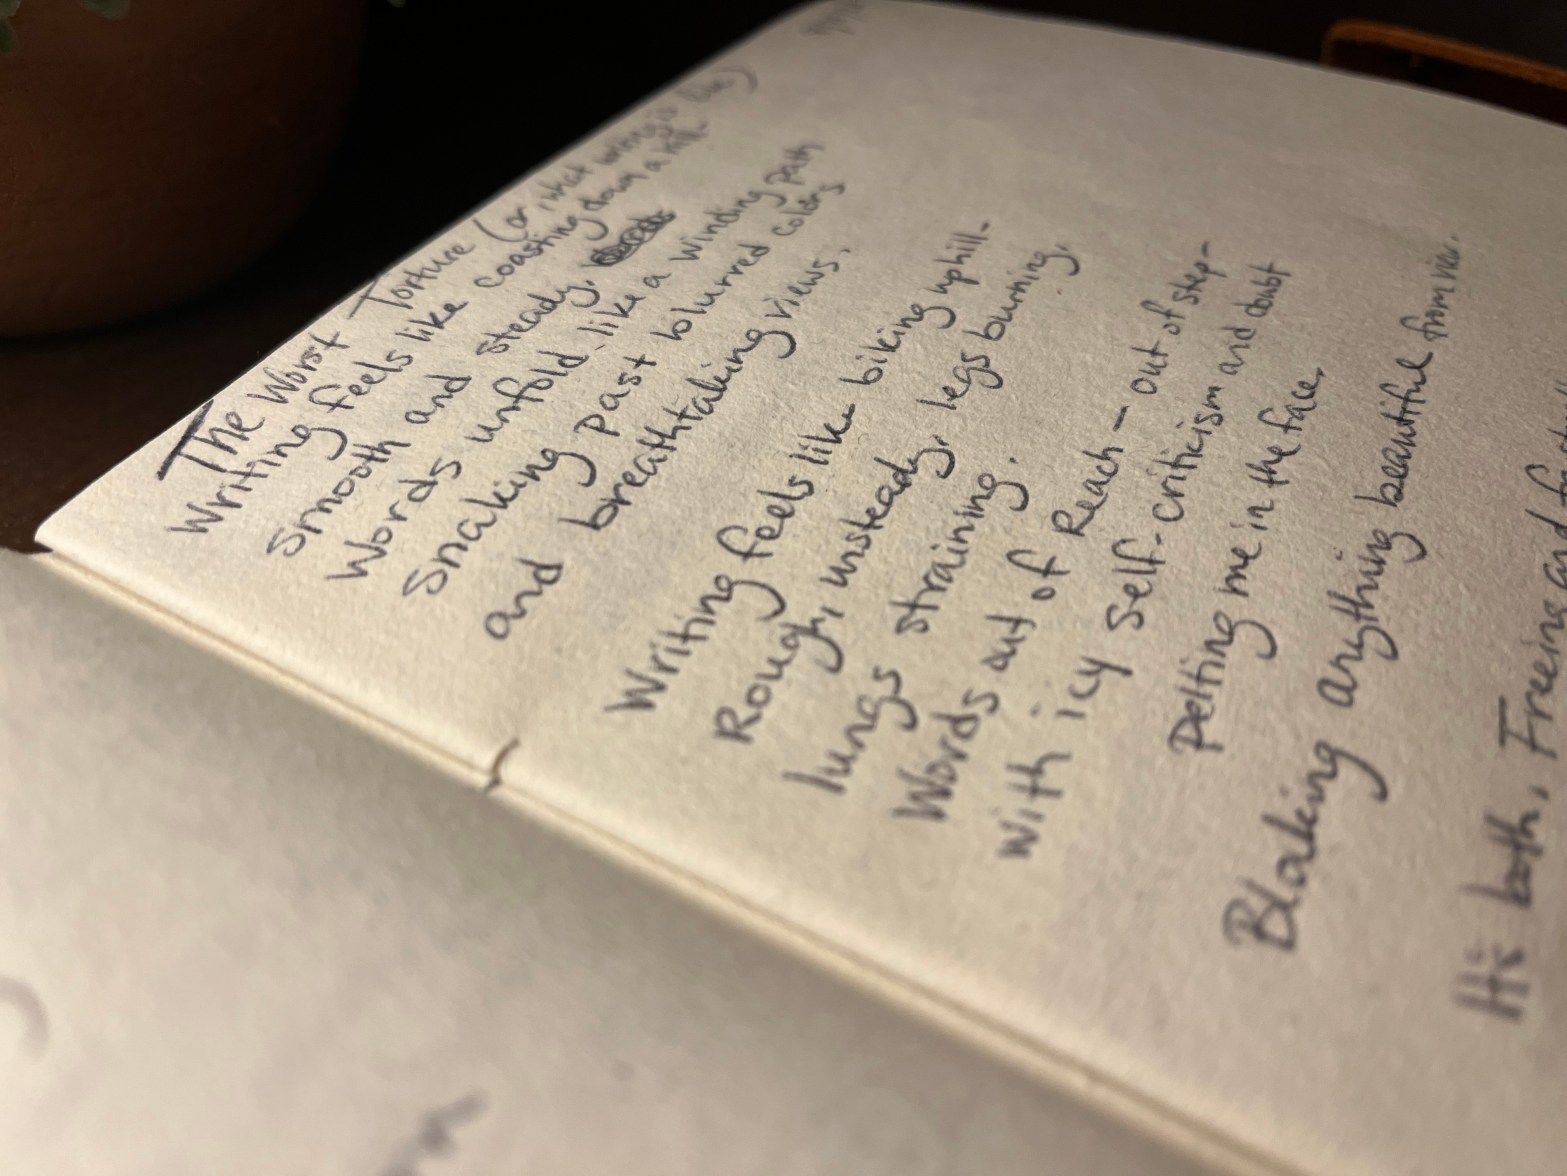 The Worst Torture (or, what writing is like)
Writing feels like coasting down a hill-
Smooth and steady.
Words unfold like a winding path
Snaking past blurred colors
and breathtaking views.
Writing feels like biking uphill-
Rough, unsteady, legs burning,
lungs straining.
Words out of Reach - out of step-
with icy self-criticism and doubt
Pelting me in the face,
Blocking anything beautiful from view.
It's both, Freeing and